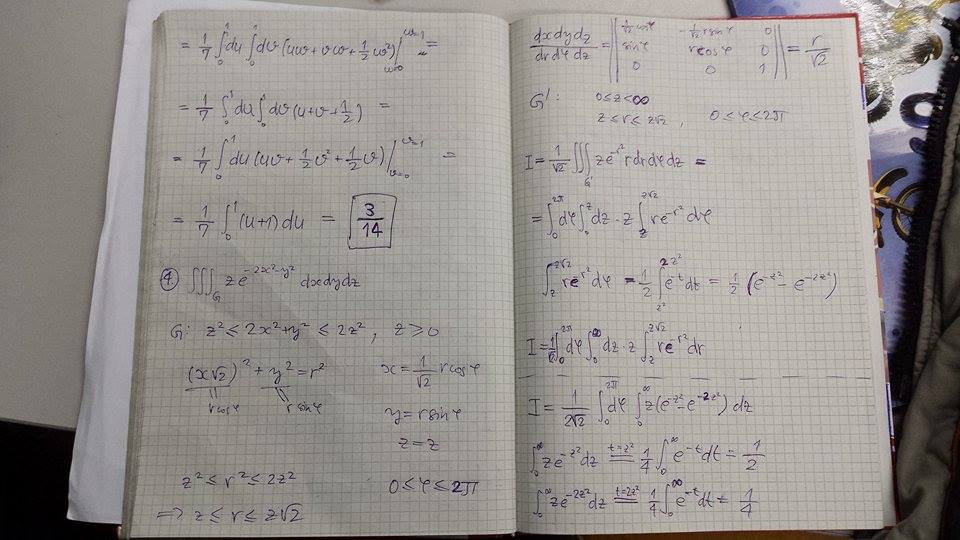 = 1/7 ∫₀¹ du ∫₀¹ dv (uw + vw + 1/2 w²) |_{w=0}^{w=1} =
= 1/7 ∫₀¹ du ∫₀¹ dv (u + v + 1/2) =
= 1/7 ∫₀¹ du (uv + 1/2 v² + 1/2 v) |_{v=0}^{v=1} =
= 1/7 ∫₀¹ (u+1) du = 3/14
④ ∭_G z e^{-2x²-y²} dxdydz
G: z² ≤ 2x²+y² ≤ 2z², z ≥ 0
(x√2)² + y² = r²
r cos φ r sin φ
x = 1/√2 r cos φ
y = r sin φ
z = z
z² ≤ r² ≤ 2z²
0 ≤ φ ≤ 2π
=> z ≤ r ≤ z√2
dxdydz / drdφdz = || 1/√2 cos φ -1/√2 r sin φ 0
sin φ r cos φ 0
0 0 1 || = r/√2
G': 0 ≤ z < ∞
z ≤ r ≤ z√2, 0 ≤ φ ≤ 2π
I = 1/√2 ∭_{G'} z e^{-r²} r dr dφ dz =
= ∫₀^{2π} dφ ∫₀^z dz · z ∫_z^{z√2} r e^{-r²} dφ
∫_z^{z√2} r e^{-r²} dφ = 1/2 ∫_{z²}^{2z²} e^{-t} dt = 1/2 (e^{-z²} - e^{-2z²})
I = 1/√2 ∫₀^{2π} dφ ∫₀^∞ dz · z ∫_z^{z√2} r e^{-r²} dr
I = 1/(2√2) ∫₀^{2π} dφ ∫₀^∞ z (e^{-z²} - e^{-2z²}) dz
∫₀^∞ z e^{-z²} dz =^{t=z²} 1/4 ∫₀^∞ e^{-t} dt = 1/2
∫₀^∞ z e^{-2z²} dz =^{t=2z²} 1/4 ∫₀^∞ e^{-t} dt = 1/4